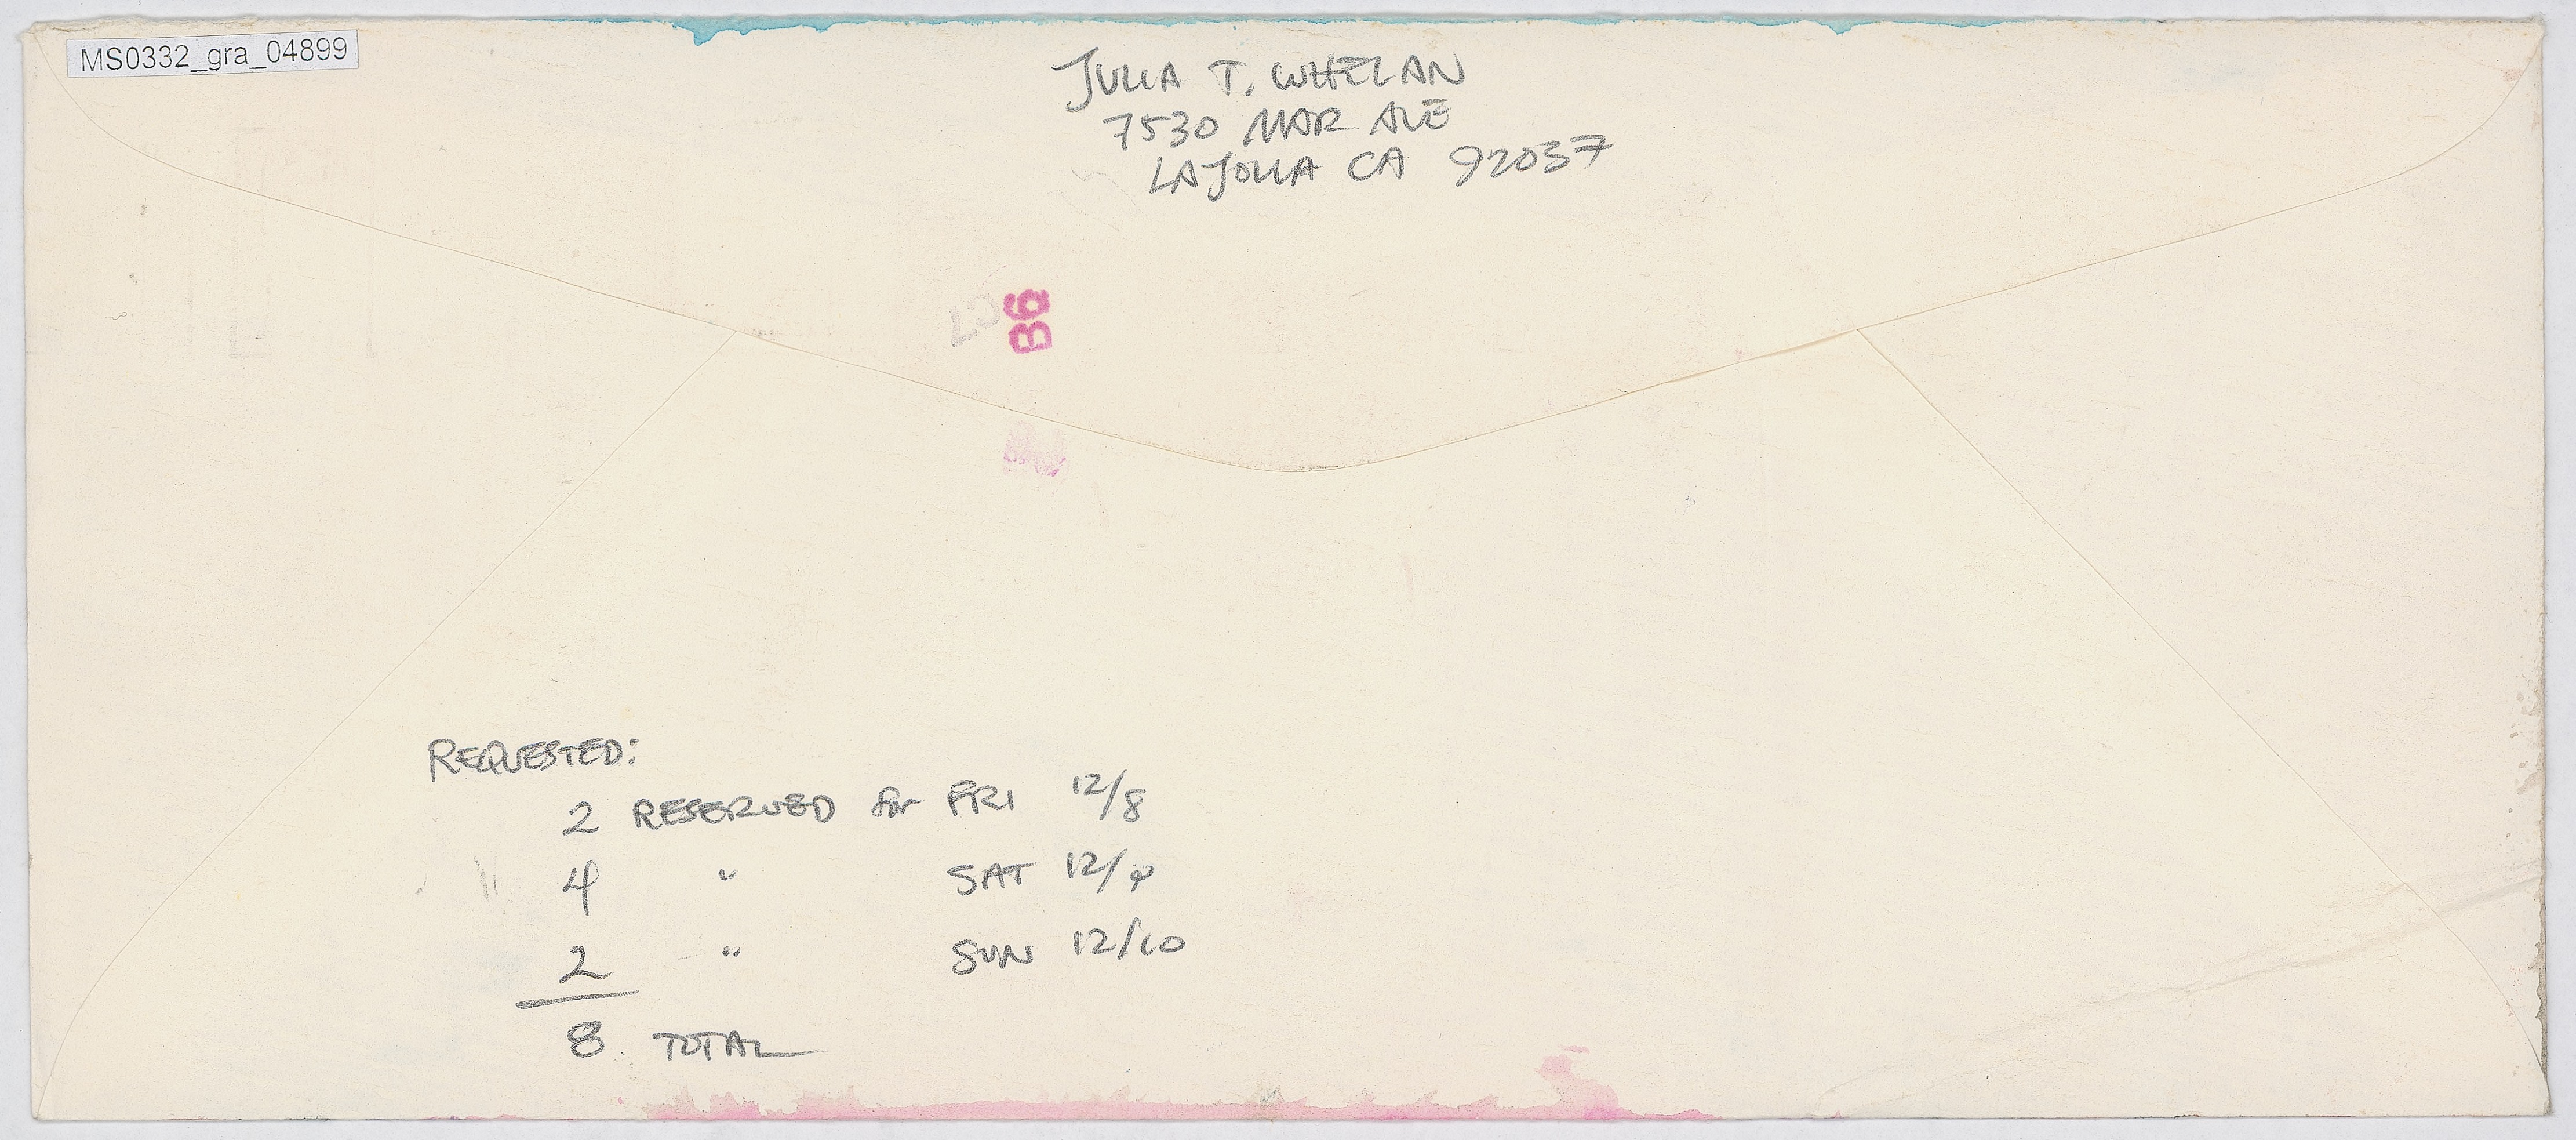 MS0332_gra_04899
JULIA T. WHELAN
7530 MAR AVE
LA JOLLA CA 92037
B6
REQUESTED:
2 RESERVED for FRI 12/8
4 " SAT 12/9
2 " SUN 12/10
8 TOTAL